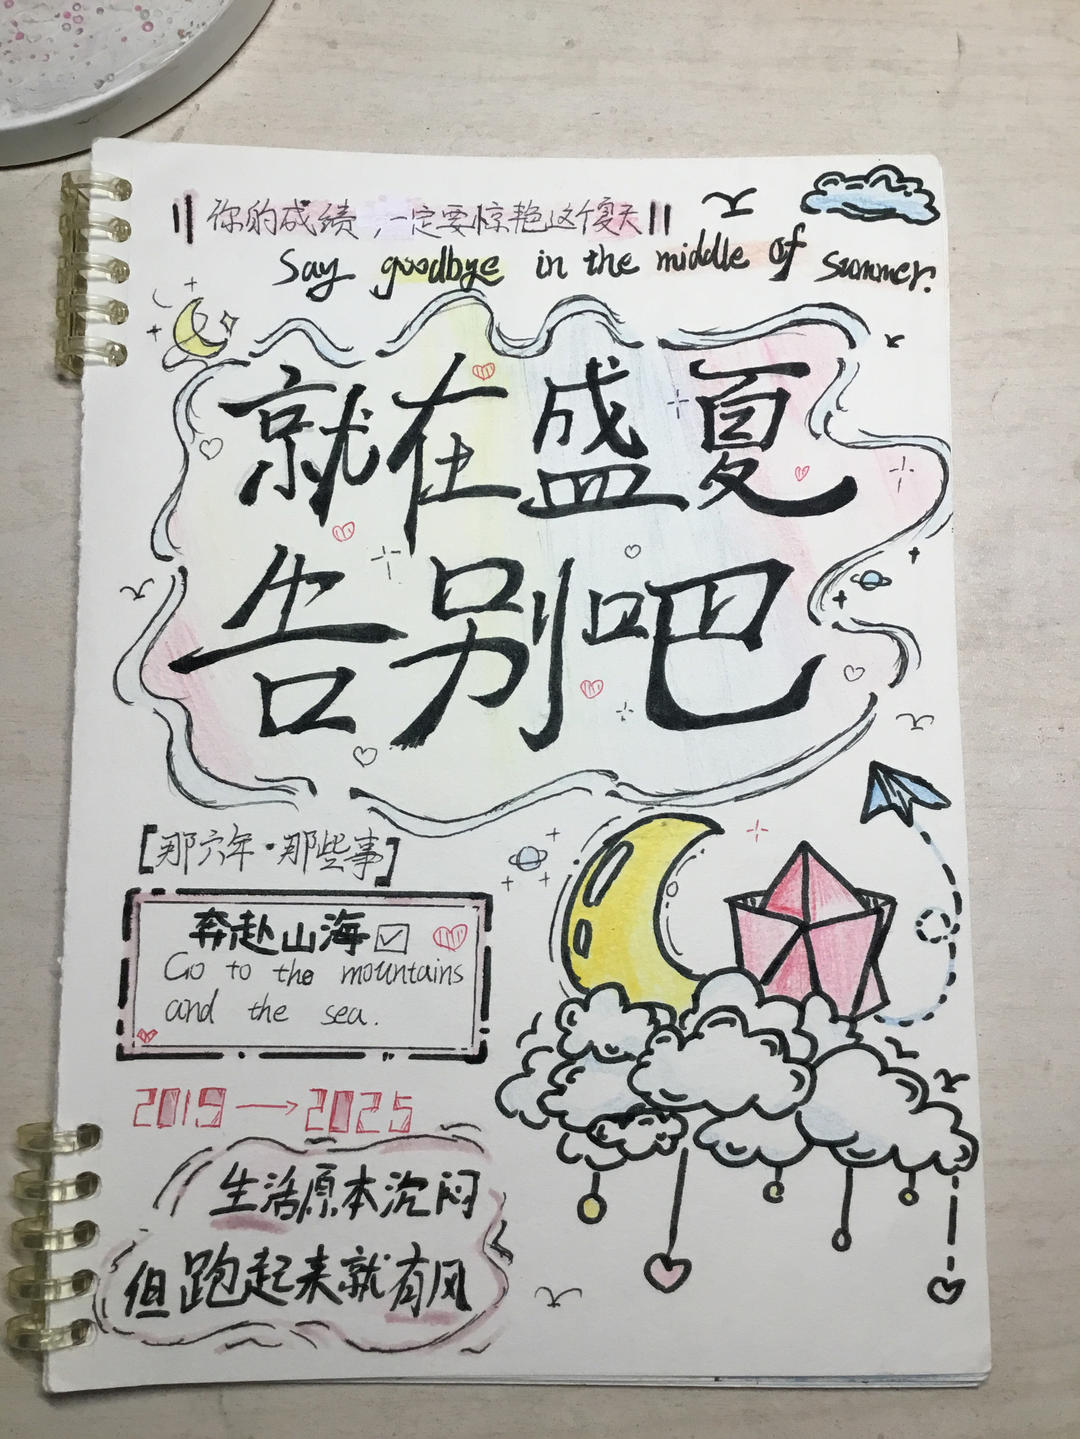 你的成绩,一定要惊艳这个夏天
Say goodbye in the middle of summer.
就在盛夏
告别吧
[那六年·那些事]
奔赴山海
Go to the mountains
and the sea.
2019→2025
生活原本沉闷
但跑起来就有风